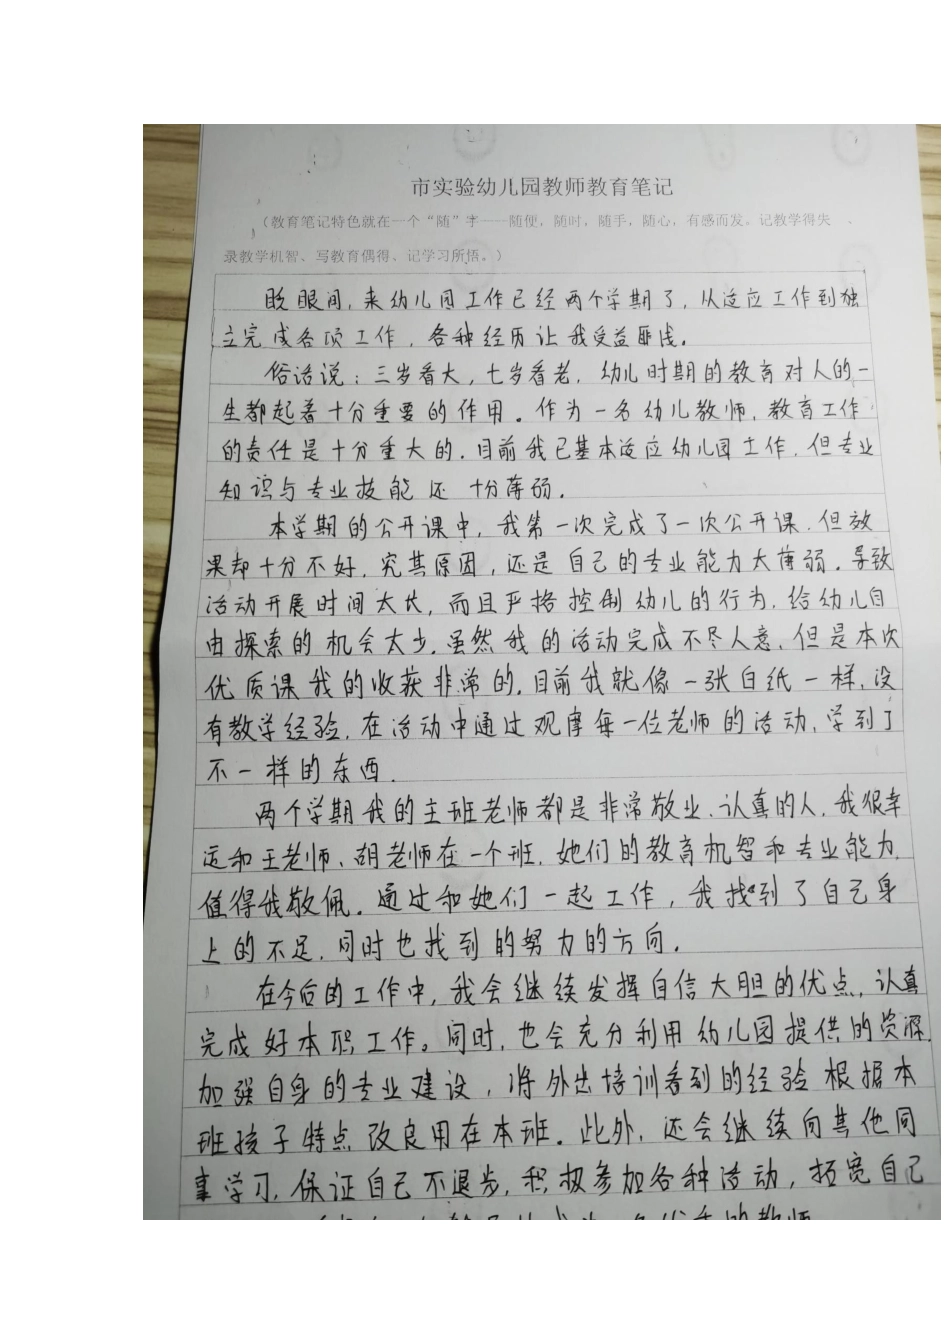 市实验幼儿园教师教育笔记
（教育笔记特色就在一个“随”字——随便，随时，随手，随心，有感而发。记教学得失、
录教学机智、写教育偶得、记学习所悟。）
眨眼间，来幼儿园工作已经两个学期了，从适应工作到独
立完成各项工作，各种经历让我受益匪浅。
俗话说：三岁看大，七岁看老，幼儿时期的教育对人的一
生都起着十分重要的作用。作为一名幼儿教师，教育工作
的责任是十分重大的，目前我已基本适应幼儿园工作，但专业
知识与专业技能还十分薄弱。
本学期的公开课中，我第一次完成了一次公开课，但效
果却十分不好，究其原因，还是自己的专业能力太薄弱。导致
活动开展时间太长，而且严格控制幼儿的行为，给幼儿自
由探索的机会太少，虽然我的活动完成不尽人意，但是本次
优质课我的收获非常的，目前我就像一张白纸一样，没
有教学经验，在活动中通过观摩每一位老师的活动，学到了
不一样的东西.
两个学期我的主班老师都是非常敬业、认真的人，我很幸
运和王老师、胡老师在一个班，她们的教育机智和专业能力，
值得我敬佩。通过和她们一起工作，我找到了自己身
上的不足，同时也找到的努力的方向。
在今后的工作中，我会继续发挥自信大胆的优点，认真
完成好本职工作。同时，也会充分利用幼儿园提供的资源，
加强自身的专业建设，将外出培训看到的经验根据本
班孩子特点改良用在本班。此外，还会继续向其他同
事学习，保证自己不退步，积极参加各种活动，拓宽自己